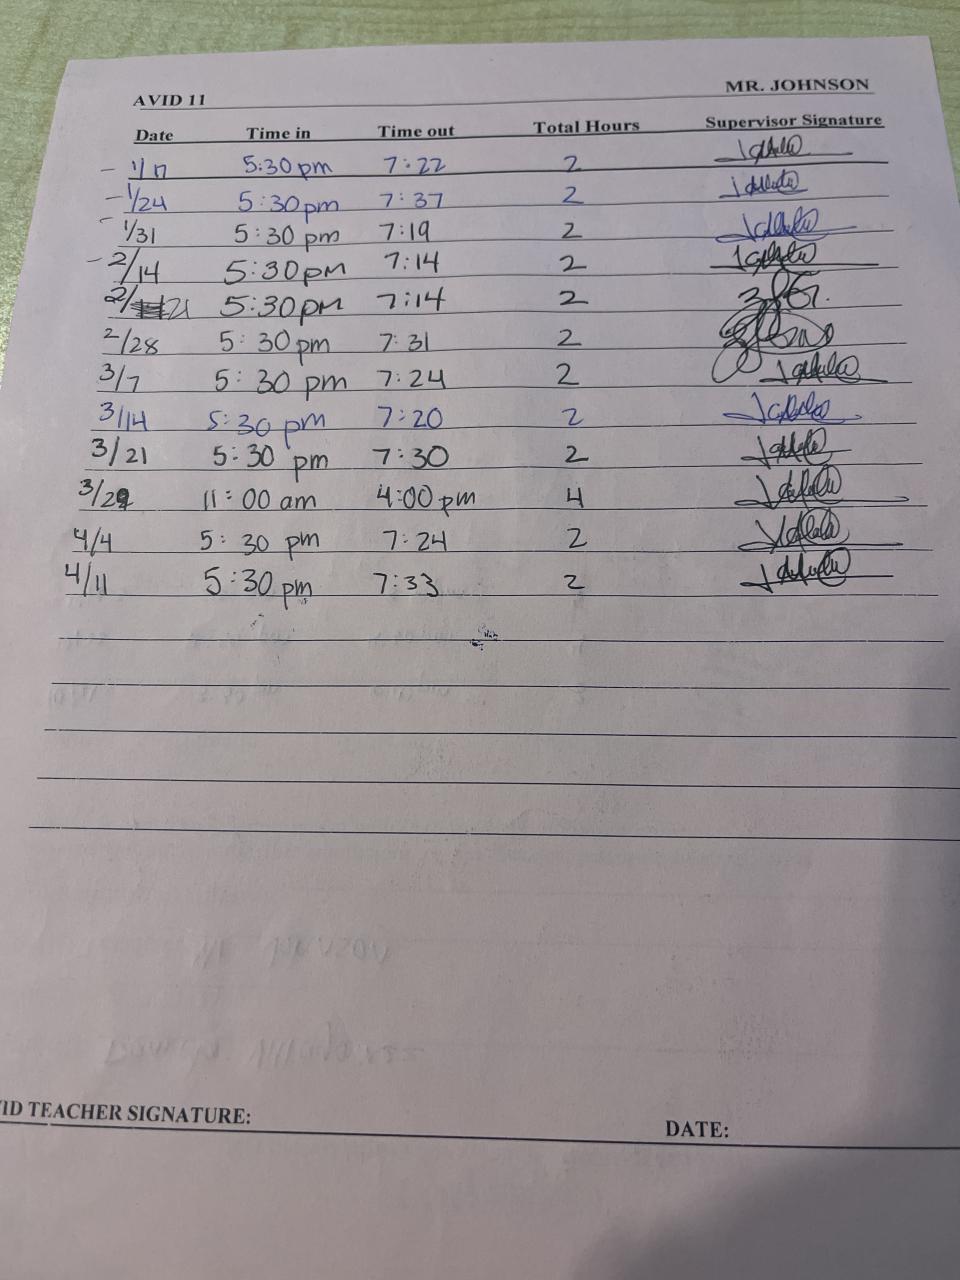 AVID 11 MR. JOHNSON
Date Time in Time out Total Hours Supervisor Signature
- 1/17 5:30 pm 7:22 2
- 1/24 5:30pm 7:37 2
- 1/31 5:30 pm 7:19 2
- 2/14 5:30pm 7:14 2
2/21 5:30pm 7:14 2
2/28 5:30pm 7:31 2
3/7 5:30 pm 7:24 2
3/14 5:30 pm 7:20 2
3/21 5:30 pm 7:30 2
3/29 11:00 am 4:00 pm 4
4/4 5:30 pm 7:24 2
4/11 5:30 pm 7:33 2
ID TEACHER SIGNATURE: DATE: